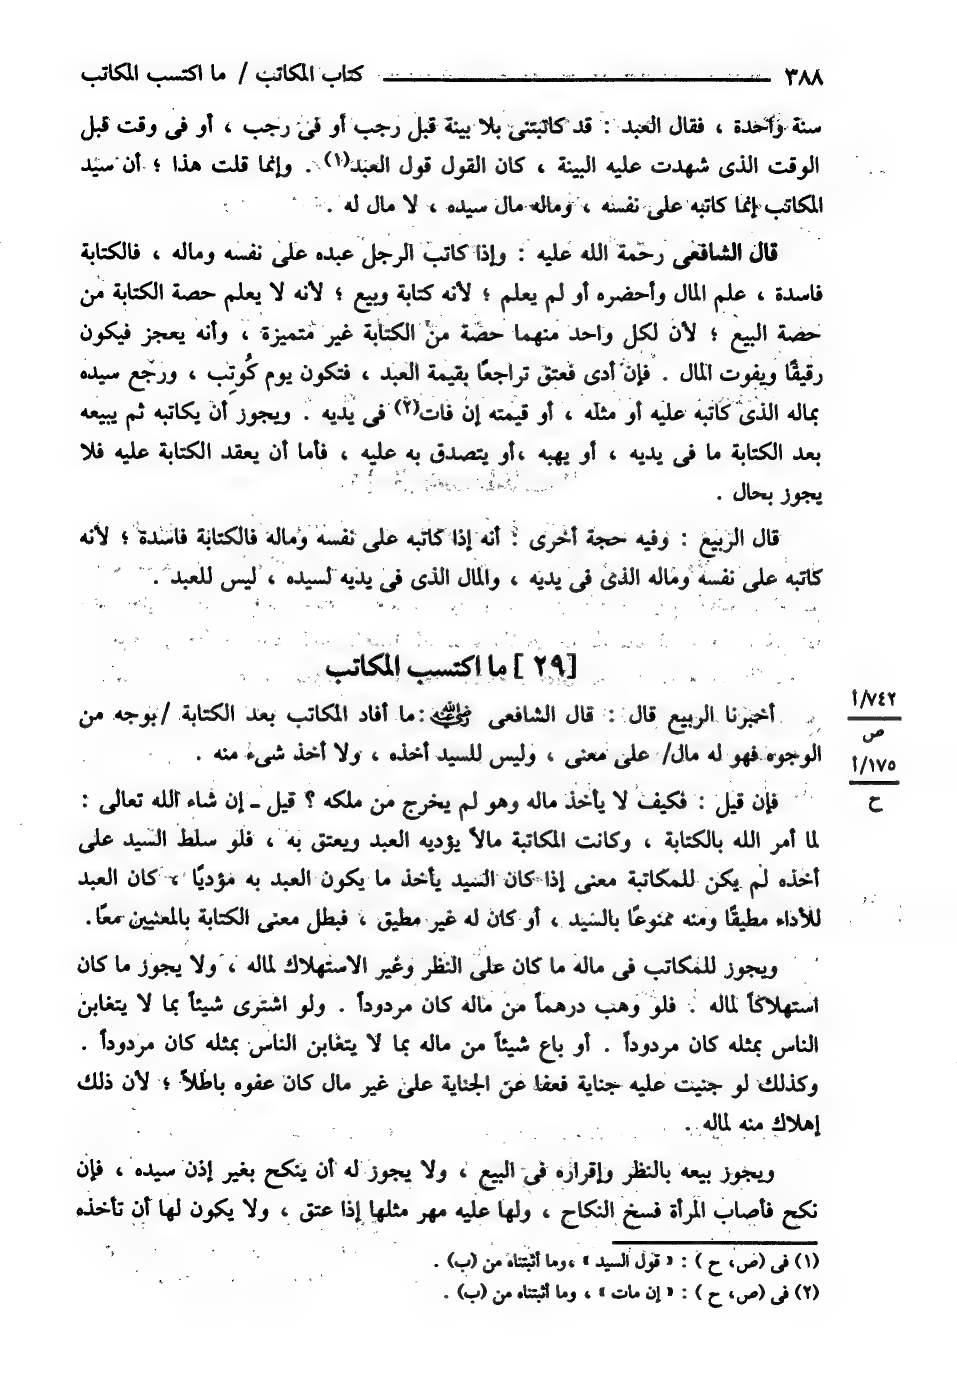 ٣٨٨ كتاب المكاتب / ما اكتسب المكاتب
سنة واحدة ، فقال العبد : قد كاتبتنى بلا بينة قبل رجب أو فى رجب ، أو فى وقت قبل
الوقت الذى شهدت عليه البينة ، كان القول قول العبد(١) . وإنما قلت هذا ؛ أن سيد
المكاتب إنما كاتبه على نفسه ، وماله مال سيده ، لا مال له .
قال الشافعى رحمة الله عليه : وإذا كاتب الرجل عبده على نفسه وماله ، فالكتابة
فاسدة ، علم المال وأحضره أو لم يعلم ؛ لأنه كتابة وبيع ؛ لأنه لا يعلم حصة الكتابة من
حصة البيع ؛ لأن لكل واحد منهما حصة من الكتابة غير متميزة ، وأنه يعجز فيكون
رقيقًا ويفوت المال . فإن أدى فعتق تراجعًا بقيمة العبد ، فتكون يوم كُوتِب ، ورجع سيده
بماله الذى كاتبه عليه أو مثله ، أو قيمته إن فات(٢) فى يديه . ويجوز أن يكاتبه ثم يبيعه
بعد الكتابة ما فى يديه ، أو يهبه ،أو يتصدق به عليه ، فأما أن يعقد الكتابة عليه فلا
يجوز بحال .
قال الربيع : وفيه حجة أخرى : أنه إذا كاتبه على نفسه وماله فالكتابة فاسدة ؛ لأنه
كاتبه على نفسه وماله الذى فى يديه ، والمال الذى فى يديه لسيده ، ليس للعبد .
[٢٩ ] ما اكتسب المكاتب
أخبرنا الربيع قال : قال الشافعى رضي الله عنه :ما أفاد المكاتب بعد الكتابة /بوجه من
٧٤٢/أ
ص
الوجوه فهو له مال/ على معنى ، وليس للسيد أخذه ، ولا أخذ شىء منه .
١٧٥/أ
ح
فإن قيل : فكيف لا يأخذ ماله وهو لم يخرج من ملكه ؟ قيل ـ إن شاء الله تعالى :
لما أمر الله بالكتابة ، وكانت المكاتبة مالاً يؤديه العبد ويعتق به ، فلو سلط السيد على
أخذه لم يكن للمكاتبة معنى إذا كان السيد يأخذ ما يكون العبد به مؤديًا ، كان العبد
للأداء مطيقًا ومنه ممنوعًا بالسيد ، أو كان له غير مطيق ، فبطل معنى الكتابة بالمعنيين معًا.
ويجوز للمكاتب فى ماله ما كان على النظر وغير الاستهلاك لماله ، ولا يجوز ما كان
استهلاكاً لماله . فلو وهب درهماً من ماله كان مردوداً . ولو اشترى شيئاً بما لا يتغابن
الناس بمثله كان مردوداً . أو باع شيئاً من ماله بما لا يتغابن الناس بمثله كان مردوداً .
وكذلك لو جنيت عليه جناية فعفا عن الجناية على غير مال كان عفوه باطلاً ؛ لأن ذلك
إهلاك منه لماله .
ويجوز بيعه بالنظر وإقراره فى البيع ، ولا يجوز له أن ينكح بغير إذن سيده ، فإن
نكح فأصاب المرأة فسخ النكاح ، ولها عليه مهر مثلها إذا عتق ، ولا يكون لها أن تأخذه
(١) فى (ص، ح ) : « قول السيد » ،وما أثبتناه من (ب) .
(٢) فى (ص، ح ) : « إن مات » ، وما أثبتناه من (ب) .